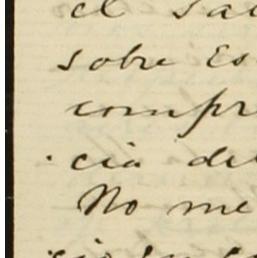 el sa
sobre Es
compr
cia de
No me